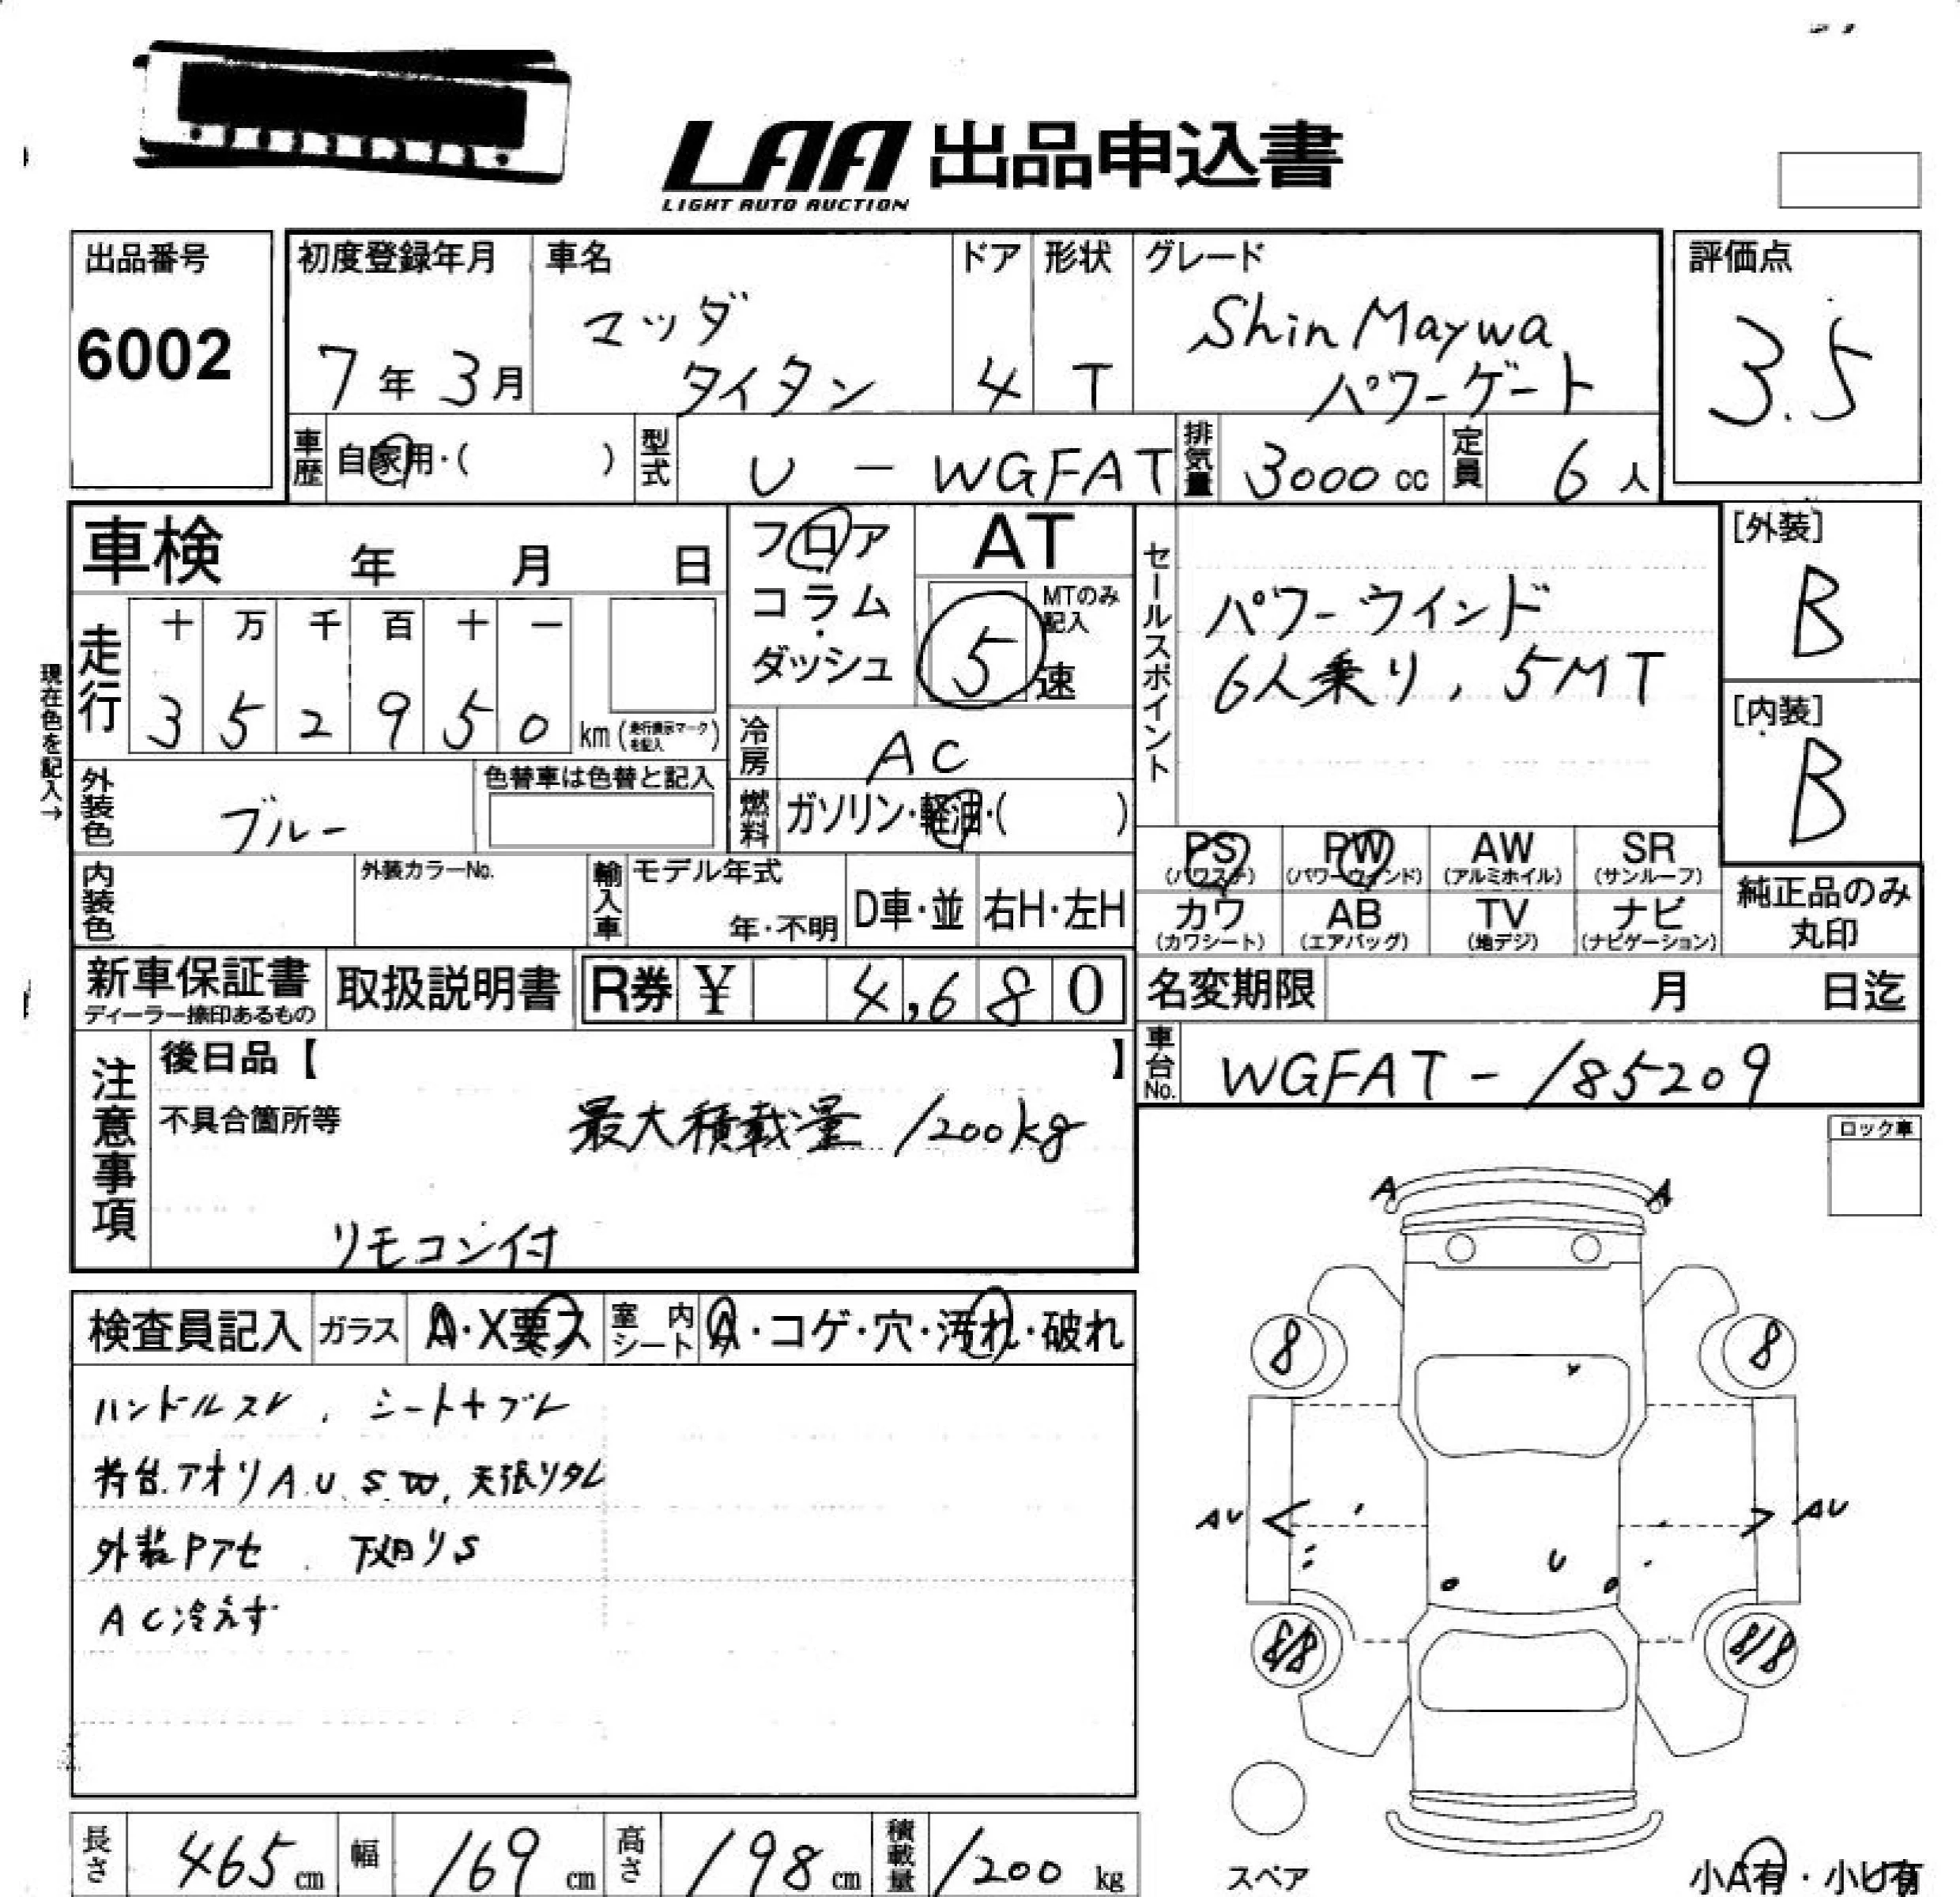 LAA 出品申込書
LIGHT AUTO AUCTION
出品番号
6002
初度登録年月
7年3月
車名
マツダ
タイタン
ドア
4
形状
T
グレード
Shin Maywa
パワーゲート
評価点
3.5
車歴 自家用・( )
型式 U - WGFAT
排気量 3000 cc
定員 6人
車検 年 月 日
フロア
コラム
・
ダッシュ
AT
5速
MTのみ
記入
セールスポイント
パワーウインド
6人乗り、5MT
[外装]
B
[内装]
B
現在色を記入→
走行
十 万 千 百 十 一
3 5 2 9 5 0 km (走行表示マークを記入)
冷房 AC
外装色 ブルー
色替車は色替と記入
燃料 ガソリン・軽油・( )
PS (パワステ)
PW (パワーウィンド)
AW (アルミホイル)
SR (サンルーフ)
カワ (カワシート)
AB (エアバッグ)
TV (地デジ)
ナビ (ナビゲーション)
純正品のみ
丸印
内装色
外装カラーNo.
輸入車
モデル年式
年・不明
D車・並
右H・左H
新車保証書
ディーラー捺印あるもの
取扱説明書
R券 ¥ 4,680
名変期限 月 日迄
車台No. WGFAT - 185209
注意事項
後日品【 】
不具合箇所等
最大積載量 1200kg
リモコン付
ロック車
検査員記入 ガラス A・X要ス 室内シート A・コゲ・穴・汚れ・破れ
ハンドルスレ、シート+ブレ
荷台.アオリA.U.S.W,天張リタレ
外装Pアセ、下廻リS
AC冷えず
A A
8 8
AU AU
U
8/8 8/8
スペア
小A有・小U有
長さ 465 cm
幅 169 cm
高さ 198 cm
積載量 1200 kg